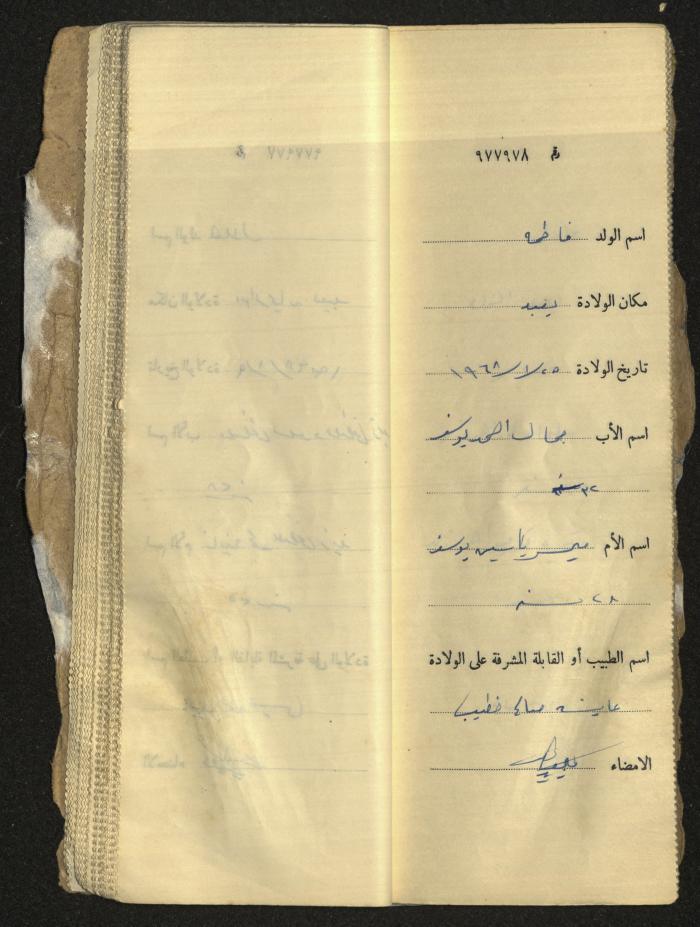 رقم ٩٧٧٩٧٨
اسم الولد فاطمه
مكان الولادة يعبد
تاريخ الولادة ٢٥/١/١٩٦٨
اسم الأب جمال احمد يوسف
٣٢ سنه
اسم الأم ياسين يوسف
٢٨ سنه
اسم الطبيب أو القابلة المشرفة على الولادة
عايشه صالح خطيب
الامضاء